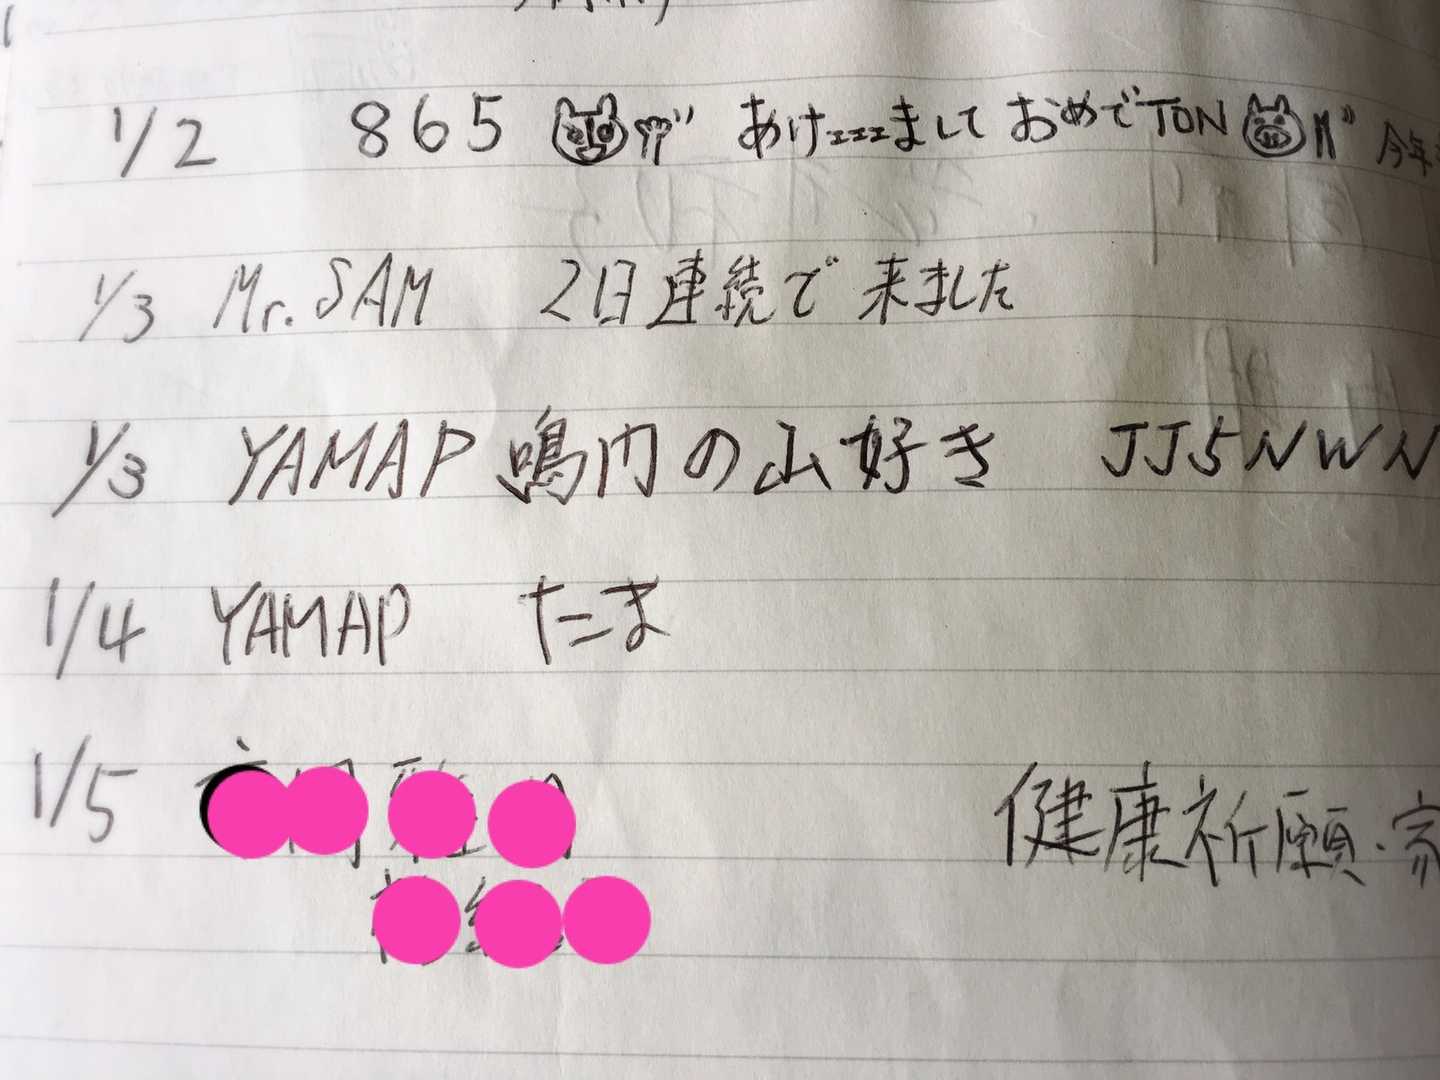 1/2 865 あけエエエまして おめでTON 今年
1/3 Mr.SAM 2日連続で来ました
1/3 YAMAP 鳴門の山好き JJ5NWN
1/4 YAMAP たま
1/5 健康祈願・家